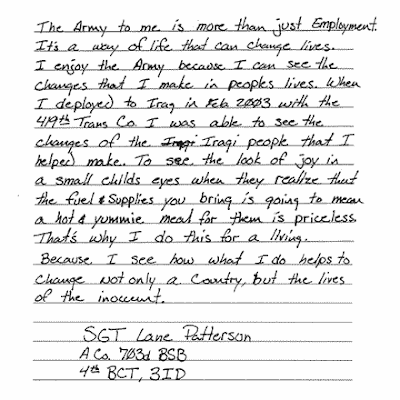 The Army to me is more than just Employment.
It's a way of life that can change lives.
I enjoy the Army because I can see the
changes that I make in peoples lives. When
I deployed to Iraq in Feb 2003 with the
419th Trans Co. I was able to see the
changes of the Iraqi people that I
helped make. To see the look of joy in
a small childs eyes when they realize that
the fuel & supplies you bring is going to mean
a hot & yummie meal for them is priceless.
That's why I do this for a living.
Because I see how what I do helps to
change not only a Country, but the lives
of the inocent.
SGT Lane Patterson
A Co. 703d BSB
4th BCT, 3ID